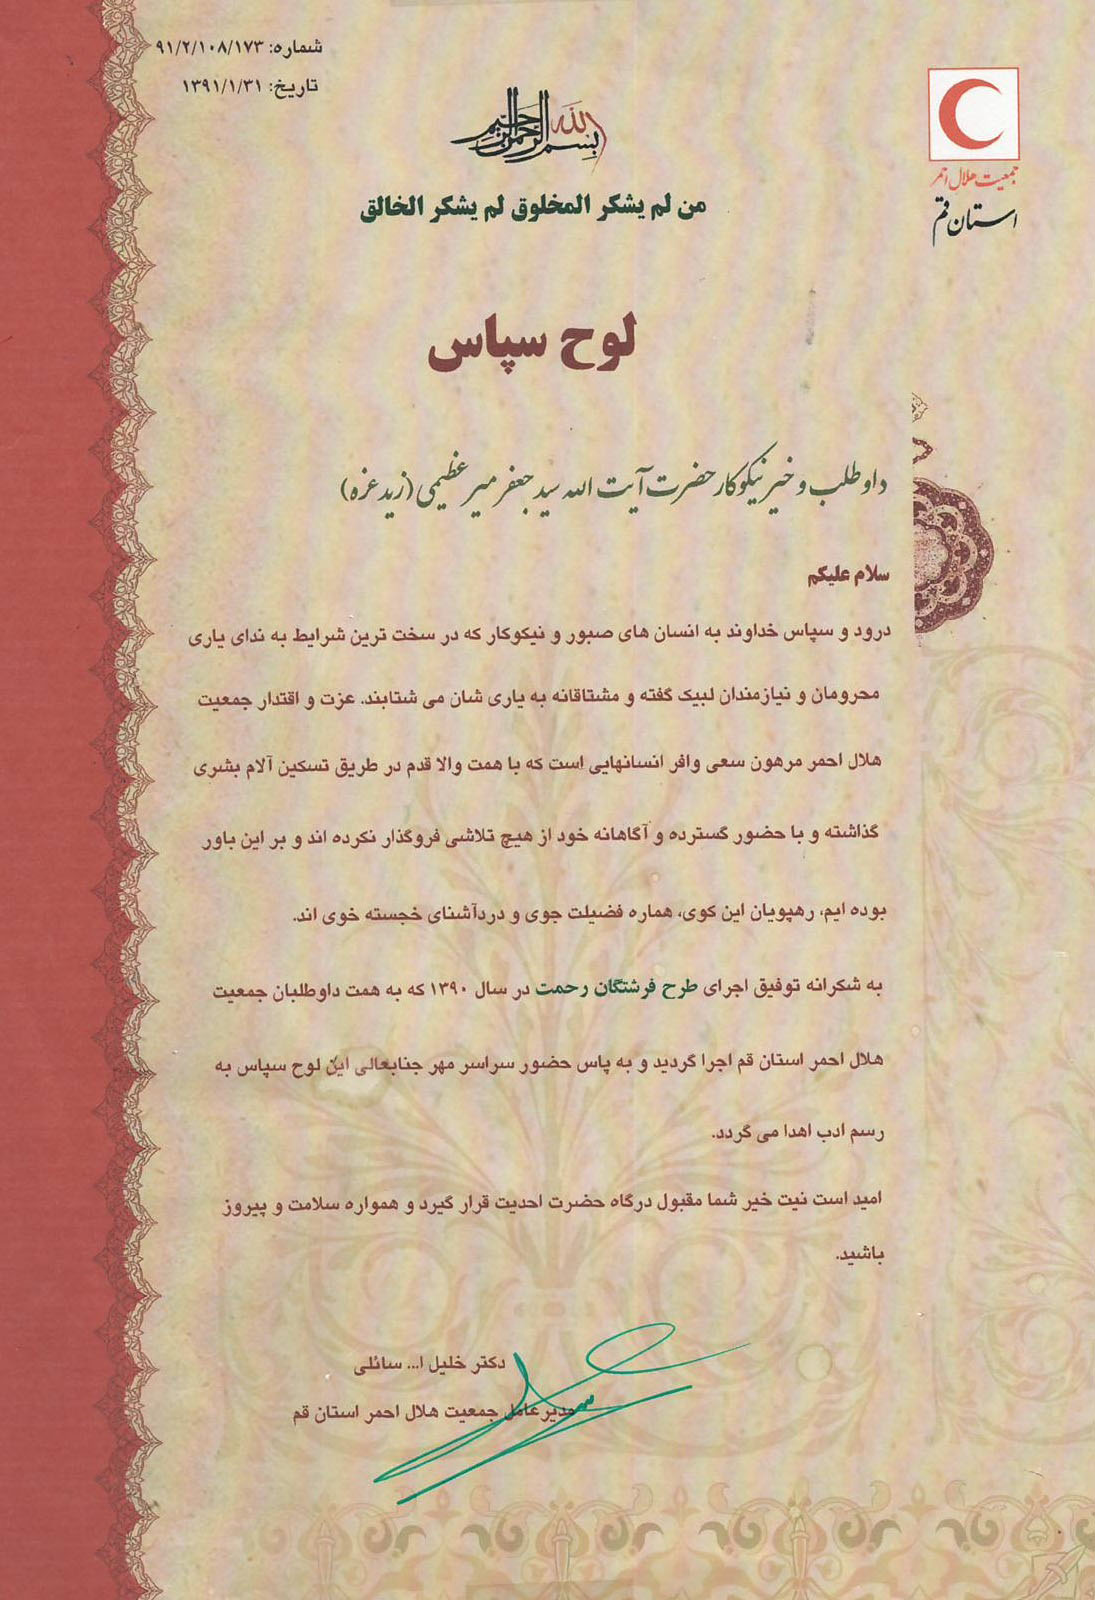 شماره: ۹۱/۲/۱۰۸/۱۷۳
تاریخ: ۱۳۹۱/۱/۳۱
بسم الله الرحمن الرحیم
جمعیت هلال احمر
استان قم
من لم یشکر المخلوق لم یشکر الخالق
لوح سپاس
داوطلب و خیر نیکوکار حضرت آیت الله سید جعفر میر عظیمی (زید عزه)
سلام علیکم
درود و سپاس خداوند به انسان های صبور و نیکوکار که در سخت ترین شرایط به ندای یاری
محرومان و نیازمندان لبیک گفته و مشتاقانه به یاری شان می شتابند. عزت و اقتدار جمعیت
هلال احمر مرهون سعی وافر انسانهایی است که با همت والا قدم در طریق تسکین آلام بشری
گذاشته و با حضور گسترده و آگاهانه خود از هیچ تلاشی فروگذار نکرده اند و بر این باور
بوده ایم، رهپویان این کوی، هماره فضیلت جوی و دردآشنای خجسته خوی اند.
به شکرانه توفیق اجرای طرح فرشتگان رحمت در سال ۱۳۹۰ که به همت داوطلبان جمعیت
هلال احمر استان قم اجرا گردید و به پاس حضور سراسر مهر جنابعالی این لوح سپاس به
رسم ادب اهدا می گردد.
امید است نیت خیر شما مقبول درگاه حضرت احدیت قرار گیرد و همواره سلامت و پیروز
باشید.
دکتر خلیل ا... سائلی
مدیرعامل جمعیت هلال احمر استان قم